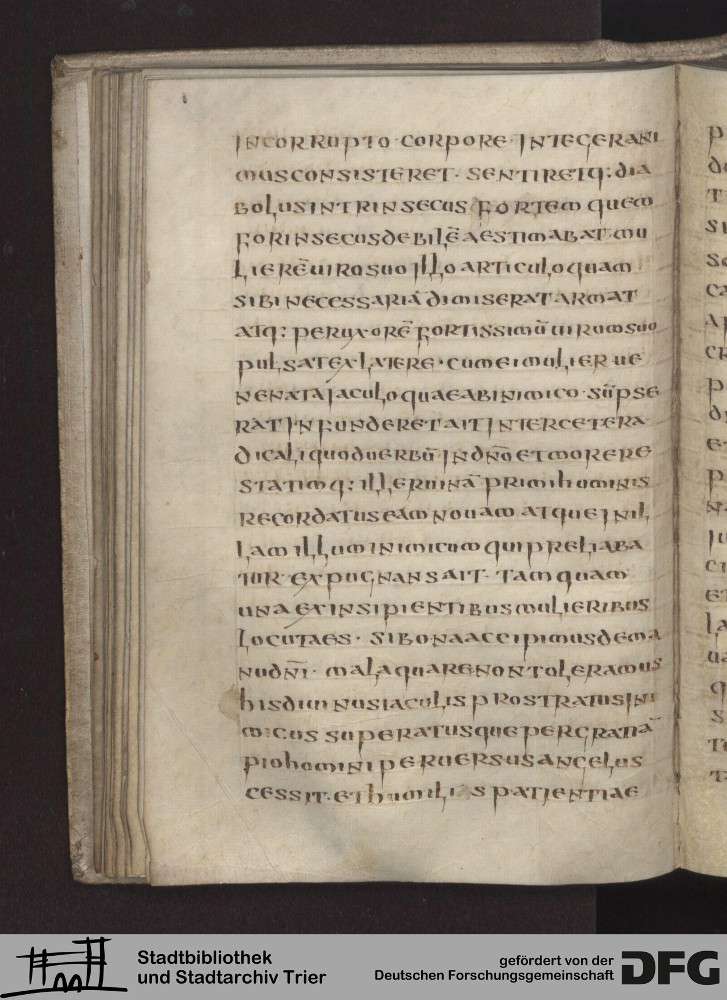 INCORRUPTO·CORPORE·INTEGERANI
MUSCONSISTERET·SENTIRETQ:DIA
BOLUSINTRINSECUS FORTEM QUEM
FORINSECUSDEBILĒAESTIMABAT·MU
LIERĒUIROSUOILLOARTICULOQUAM
SIBINECESSARIĀDIMISERATARMAT
ATQ:PERUXORĒFORTISSIMŪUIRUMSUO
PULSATEXLATERE·CUMEIMULIERUE
NENATAIACULOQUAEABINIMICO·SŪPSE
RATINFUNDERETAITINTERCETERA
DICALIQUODUERBŪINDNŌETMORERE
STATIMQ:ILLERUINĀPRIMIHOMINIS
RECORDATUSEAMNOUAMATQUEINIL
LAMILLUMINIMICUMQUIPRELIABA
TUR·EXPUGNANSAIT·TAMQUAM
UNAEXINSIPIENTIBUSMULIERIBUS
LOCUTAES·SIBONAACCIPIMUSDEMA
NUDNĪ·MALAQUARENONTOLERAMUS
HISDIUINUSIACULISPROSTRATUSINI
MICUSSUPERATUSQUEPERGRATIĀ
PIOHOMINIPERUERSUSANGELUS
CESSIT·ETHUMILI S PATIENTIAE
Stadtbibliothek
und Stadtarchiv Trier
gefördert von der
Deutschen Forschungsgemeinschaft
DFG